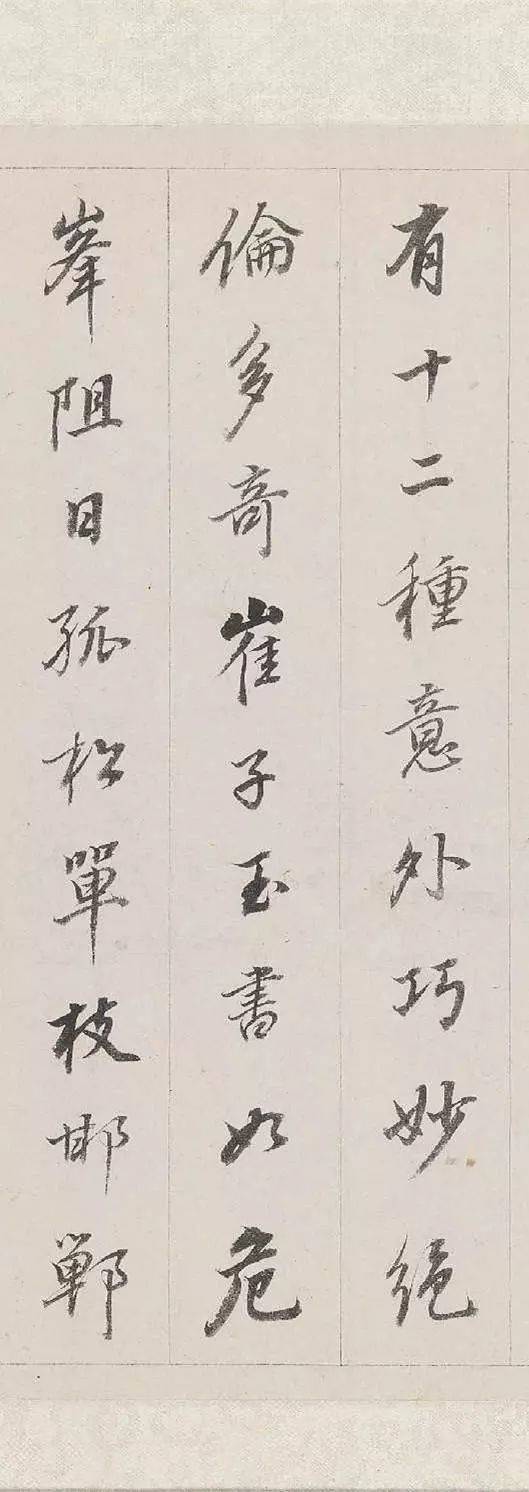 有十二種意外巧妙絕
倫多奇崔子玉書如危
峯阻日孤松單枝邯
鄲